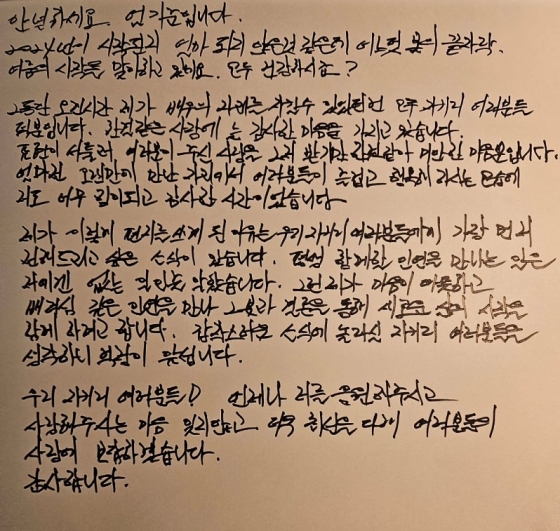 안녕하세요. 엄기준입니다.
2024년이 시작된지 얼마 되지 않은것 같은데 어느덧 봄의 끝자락.
여름의 시작을 맞이하고 있네요. 모두 건강하시죠?
그동안 오랜시간 제가 배우의 자리를 지킬수 있었던건 모두 지켜준 여러분들
덕분입니다. 한결같은 사랑에 늘 감사한 마음을 가지고 있습니다.
표현이 서툴러 여러분이 주신 사랑을 그저 받기만 한것같아 미안한 마음뿐입니다.
얼마전 오랜만에 만난 자리에서 여러분들이 즐겁고 행복해 하시는 모습에
저도 너무 힘이되고 감사한 시간이었습니다.
제가 이렇게 편지를 쓰게 된 이유는 우리 여러분들에게 가장 먼저
전해드리고 싶은 소식이 있습니다. 평생 함께할 인연을 만나는 일은
저에겐 없는 일인줄 알았습니다. 그런 제가 마음이 따뜻하고
배려심 깊은 인연을 만나 그분과 결혼을 통해 새로운 삶의 시작을
함께 하려고 합니다. 갑작스러운 소식에 놀라실 여러분들을
생각하니 걱정이 앞섭니다.
우리 여러분들! 언제나 저를 응원해주시고
사랑해주시는 마음 잊지않고 더욱 최선을 다해 여러분들의
사랑에 보답하겠습니다.
감사합니다.